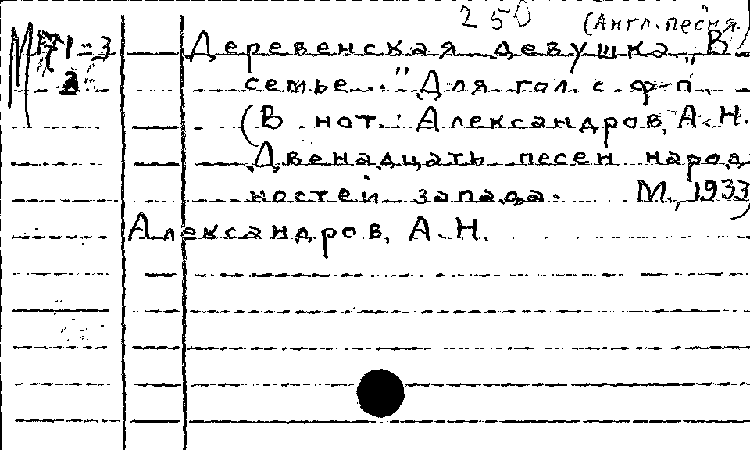 250 (Англ.песня.)
М 71-3 Деревенская девушка „В
3 семье.." Для гол. с ф-п.
(В нот.: Александров, А.Н.
Двенадцать песен народ
ностей запада. М., 1933)
Александров, А.Н.